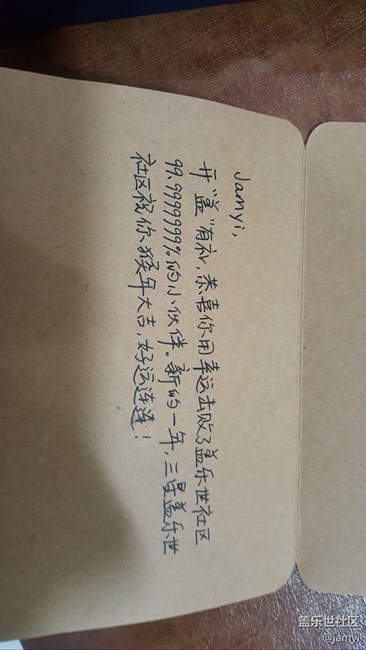 Jamyi,
开“盖”有礼,恭喜你用幸运击败了盖乐世社区
99.9999999%的小伙伴。新的一年,三星盖乐世
社区祝你猴年大吉,好运连连!
盖乐世社区
@jamyi